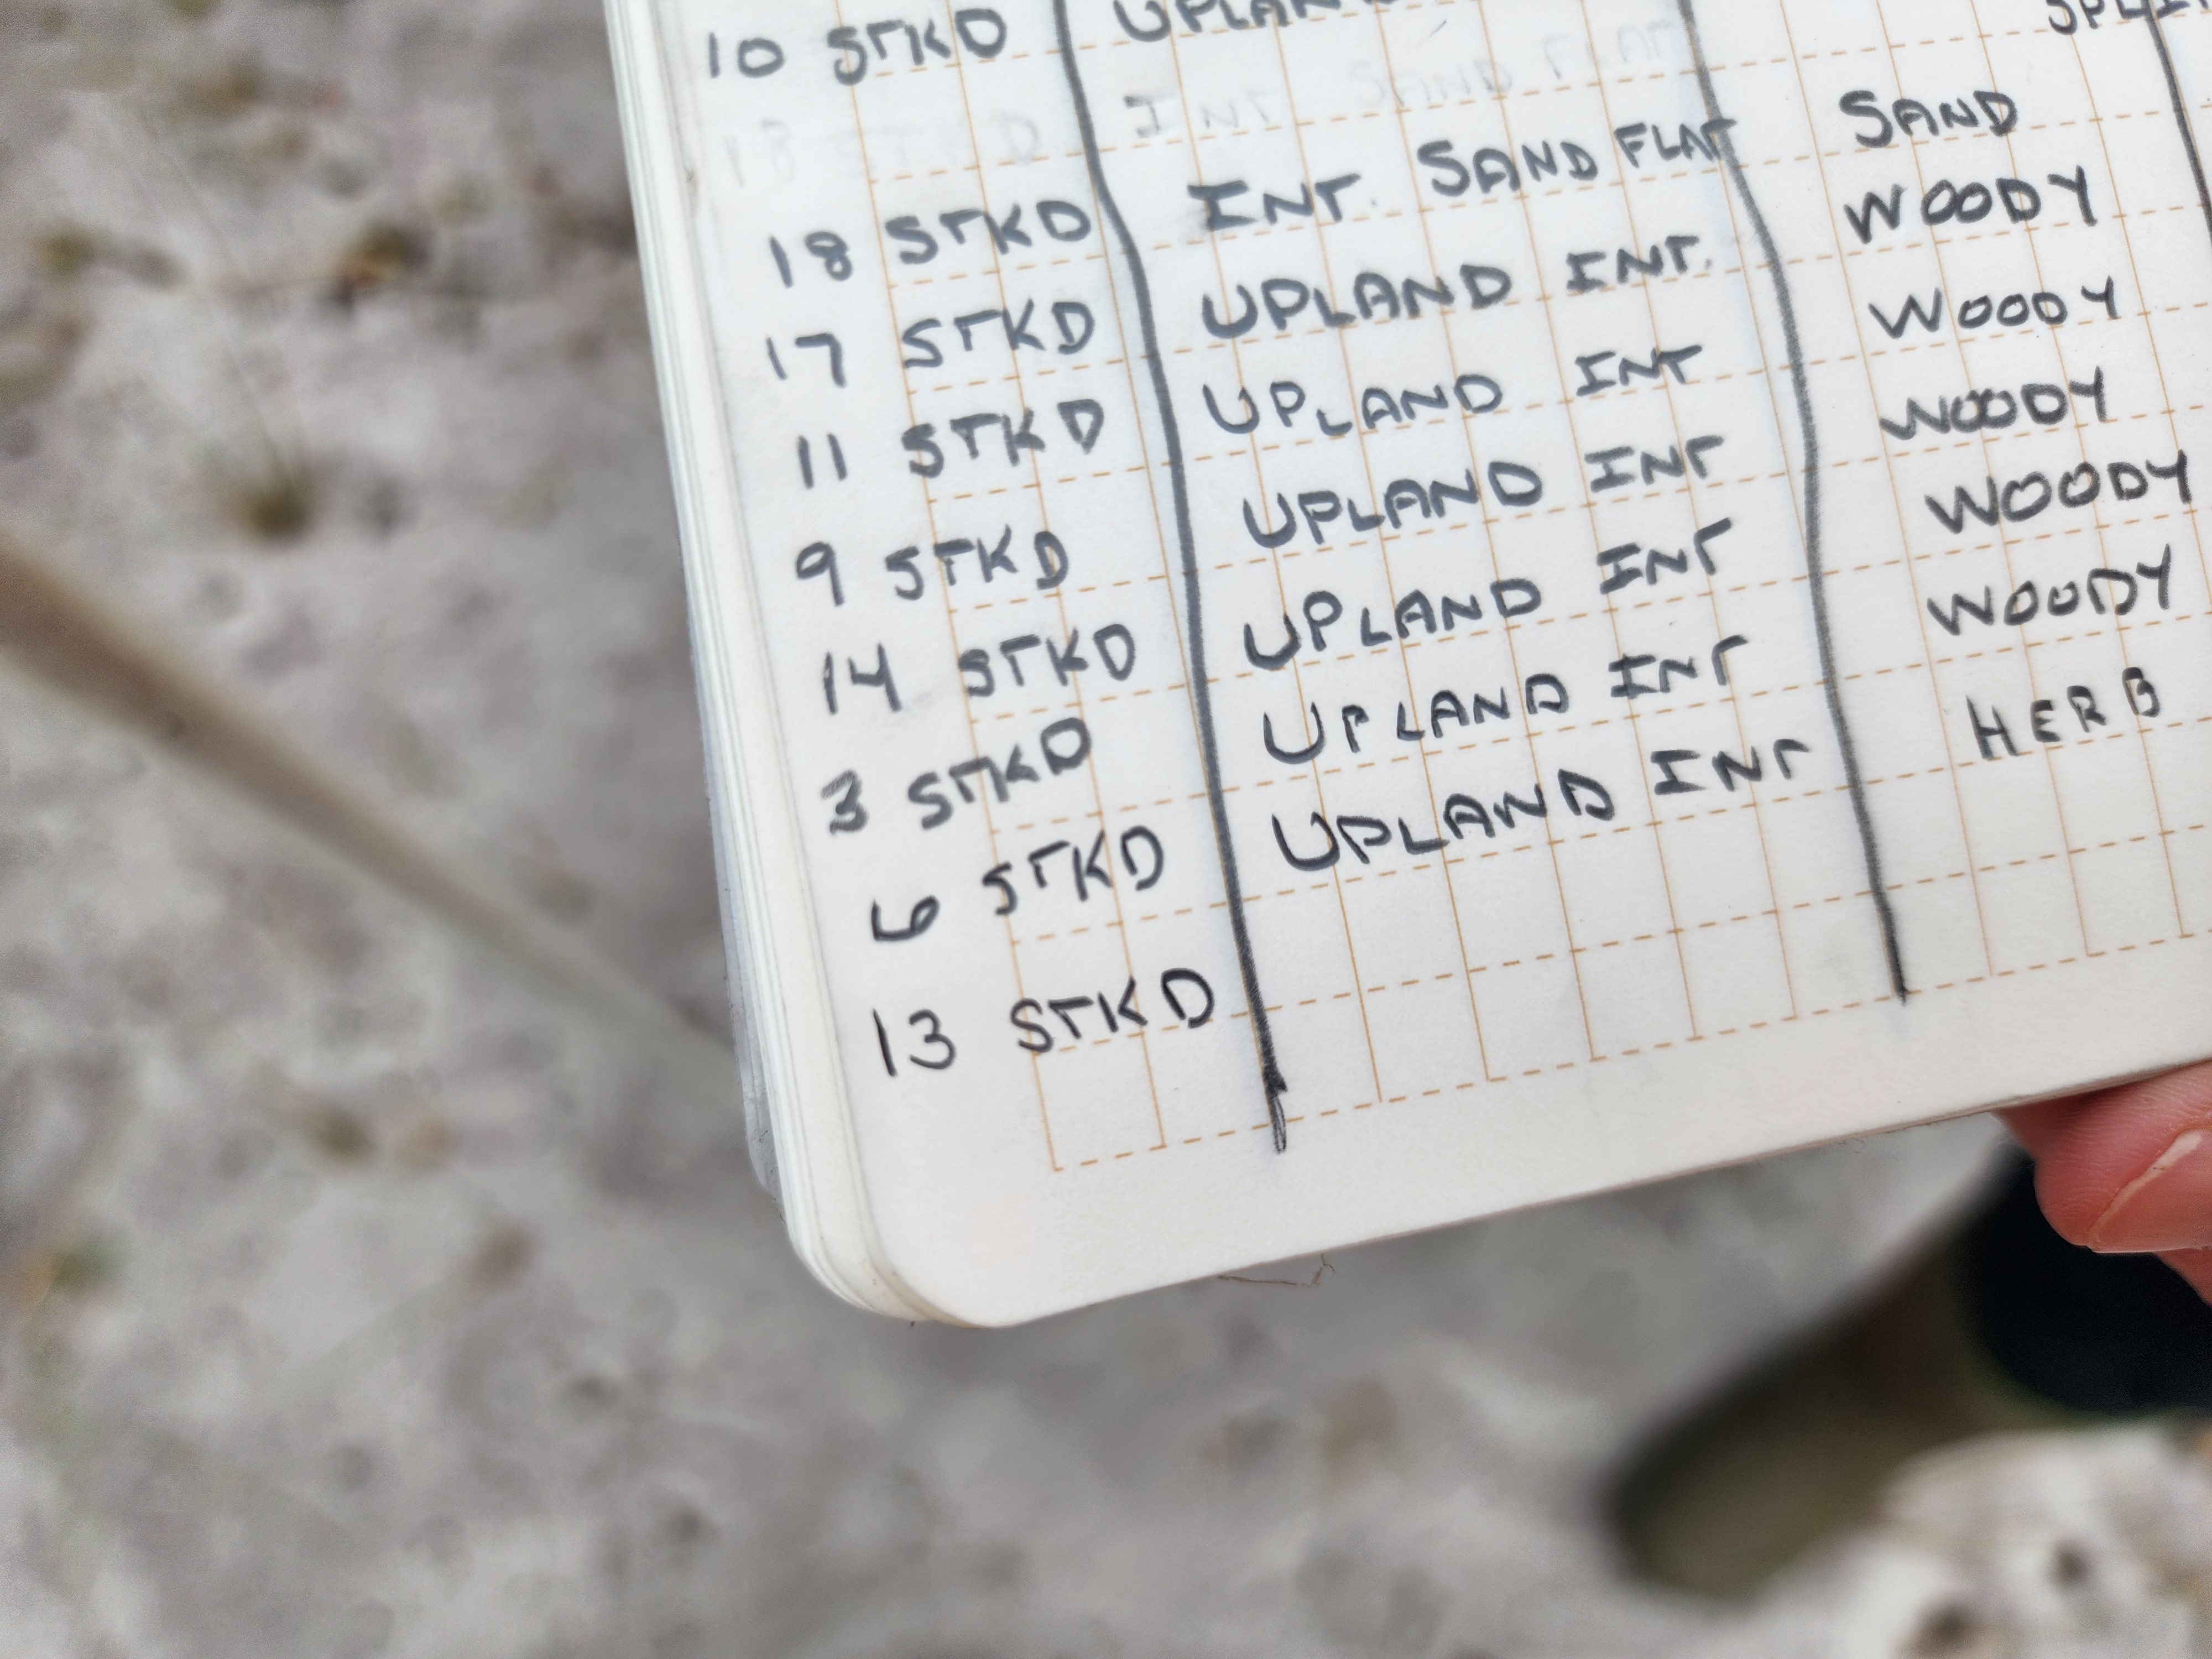 10 STKD UPLAN
18 INT SAND FLAT
18 STKD INT. SAND FLAT SAND
17 STKD UPLAND INT. WOODY
11 STKD UPLAND INT WOODY
9 STKD UPLAND INT WOODY
14 STKD UPLAND INT WOODY
3 STKD UPLAND INT WOODY
6 STKD UPLAND INT HERB
13 STKD